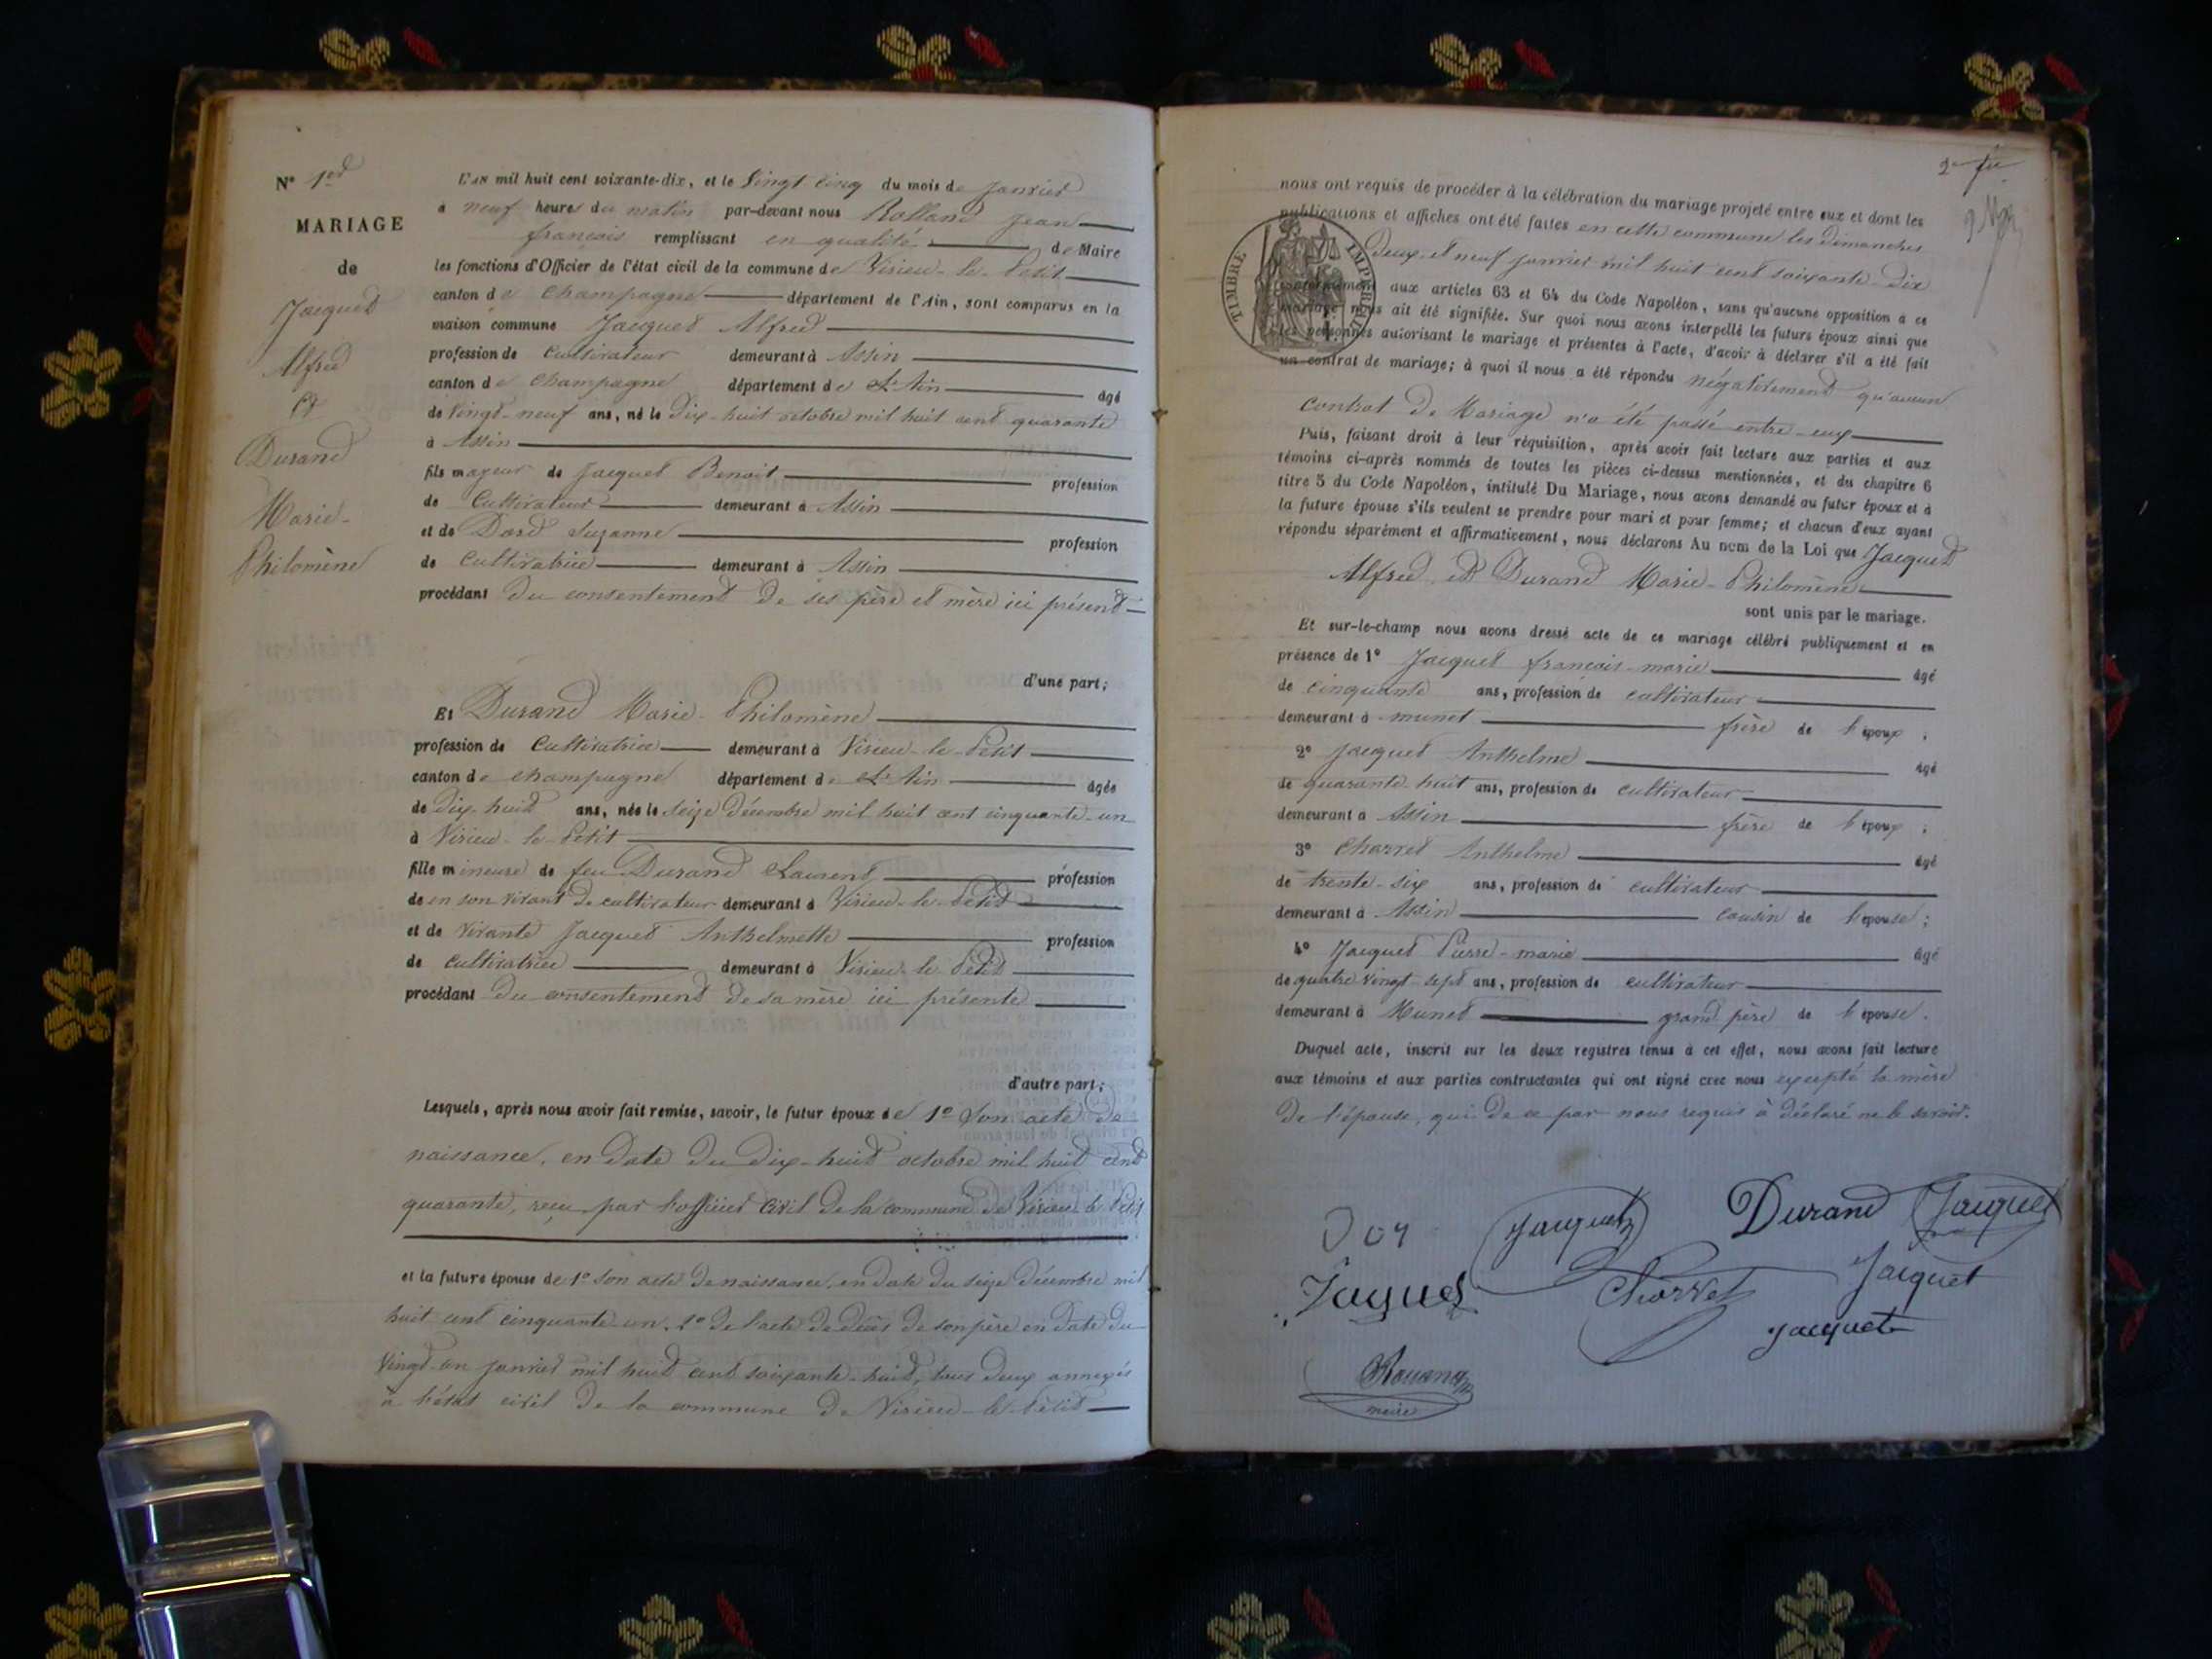 N° 1er
MARIAGE
de
Jacquet
Alfred
Et
Durand
Marie-
Philomène
L'AN mil huit cent soixante-dix, et le vingt cinq du mois de janvier
à neuf heures du matin par-devant nous Rolland Jean
françois remplissant en qualité de Maire
les fonctions d'Officier de l'état civil de la commune de Virieu-le-Petit
canton de Champagne département de l'Ain, sont comparus en la
maison commune Jacquet Alfred
profession de cultivateur demeurant à Assin
canton de Champagne département de L'Ain âgé
de vingt-neuf ans, né le dix-huit octobre mil huit cent quarante
à Assin
fils majeur de Jacquet Benoit profession
de Cultivateur demeurant à Assin
et de Dord Suzanne profession
de cultivatrice demeurant à Assin
procédant du consentement de ses père et mère ici présent
d'une part;
Et Durand Marie-Philomène
profession de Cultivatrice demeurant à Virieu-le-Petit
canton de Champagne département de L'Ain âgée
de dix-huit ans, née le seize Décembre mil huit cent cinquante-un
à Virieu-le-Petit
fille mineure de feu Durand Laurent profession
de en son vivant de cultivateur demeurant à Virieu-le-Petit
et de vivante Jacquet Anthelmette profession
de cultivatrice demeurant à Virieu-le-Petit
procédant du consentement de sa mère ici présente
d'autre part;
Lesquels, après nous avoir fait remise, savoir, le futur époux de 1° Son acte de
naissance, en date du dix-huit octobre mil huit cent
quarante, reçu par l'officier civil de la commune de Virieu-le-Petit
et la future épouse de 1° son acte de naissance, en date du seize décembre mil
huit cent cinquante-un, 2° de l'acte de décès de son père en date du
vingt-un janvier mil huit cent soixante-huit, tous deux annexés
à l'état civil de la commune de Virieu-le-Petit
2e
nous ont requis de procéder à la célébration du mariage projeté entre eux et dont les
publications et affiches ont été faites en cette commune les dimanches
deux et neuf janvier mil huit cent soixante-dix
TIMBRE IMPÉRIAL
conformément aux articles 63 et 64 du Code Napoléon, sans qu'aucune opposition à ce
mariage nous ait été signifiée. Sur quoi nous avons interpellé les futurs époux ainsi que
les personnes autorisant le mariage et présentes à l'acte, d'avoir à déclarer s'il a été fait
un contrat de mariage; à quoi il nous a été répondu négativement qu'aucun
contrat de Mariage n'a été passé entre eux
Puis, faisant droit à leur réquisition, après avoir fait lecture aux parties et aux
témoins ci-après nommés de toutes les pièces ci-dessus mentionnées, et du chapitre 6
titre 5 du Code Napoléon, intitulé Du Mariage, nous avons demandé au futur époux et à
la future épouse s'ils veulent se prendre pour mari et pour femme; et chacun d'eux ayant
répondu séparément et affirmativement, nous déclarons Au nom de la Loi que Jacquet
Alfred, et Durand Marie-Philomène
sont unis par le mariage.
Et sur-le-champ nous avons dressé acte de ce mariage célébré publiquement et en
présence de 1° Jacquet françois-marie âgé
de cinquante ans, profession de cultivateur
demeurant à munet frère de l'époux;
2° Jacquet Anthelme âgé
de quarante-huit ans, profession de cultivateur
demeurant à Assin frère de l'époux;
3° Charret Anthelme âgé
de trente-six ans, profession de cultivateur
demeurant à Assin cousin de l'épouse;
4° Jacquet Pierre-marie âgé
de quatre vingt-sept ans, profession de cultivateur
demeurant à Munet grand père de l'épouse.
Duquel acte, inscrit sur les deux registres tenus à cet effet, nous avons fait lecture
aux témoins et aux parties contractantes qui ont signé avec nous excepté la mère
de l'épouse, qui de ce par nous requis a déclaré ne le savoir.
Jacquet Durand Jacquet
Jaquet Charret Jacquet
Jacquet
maire